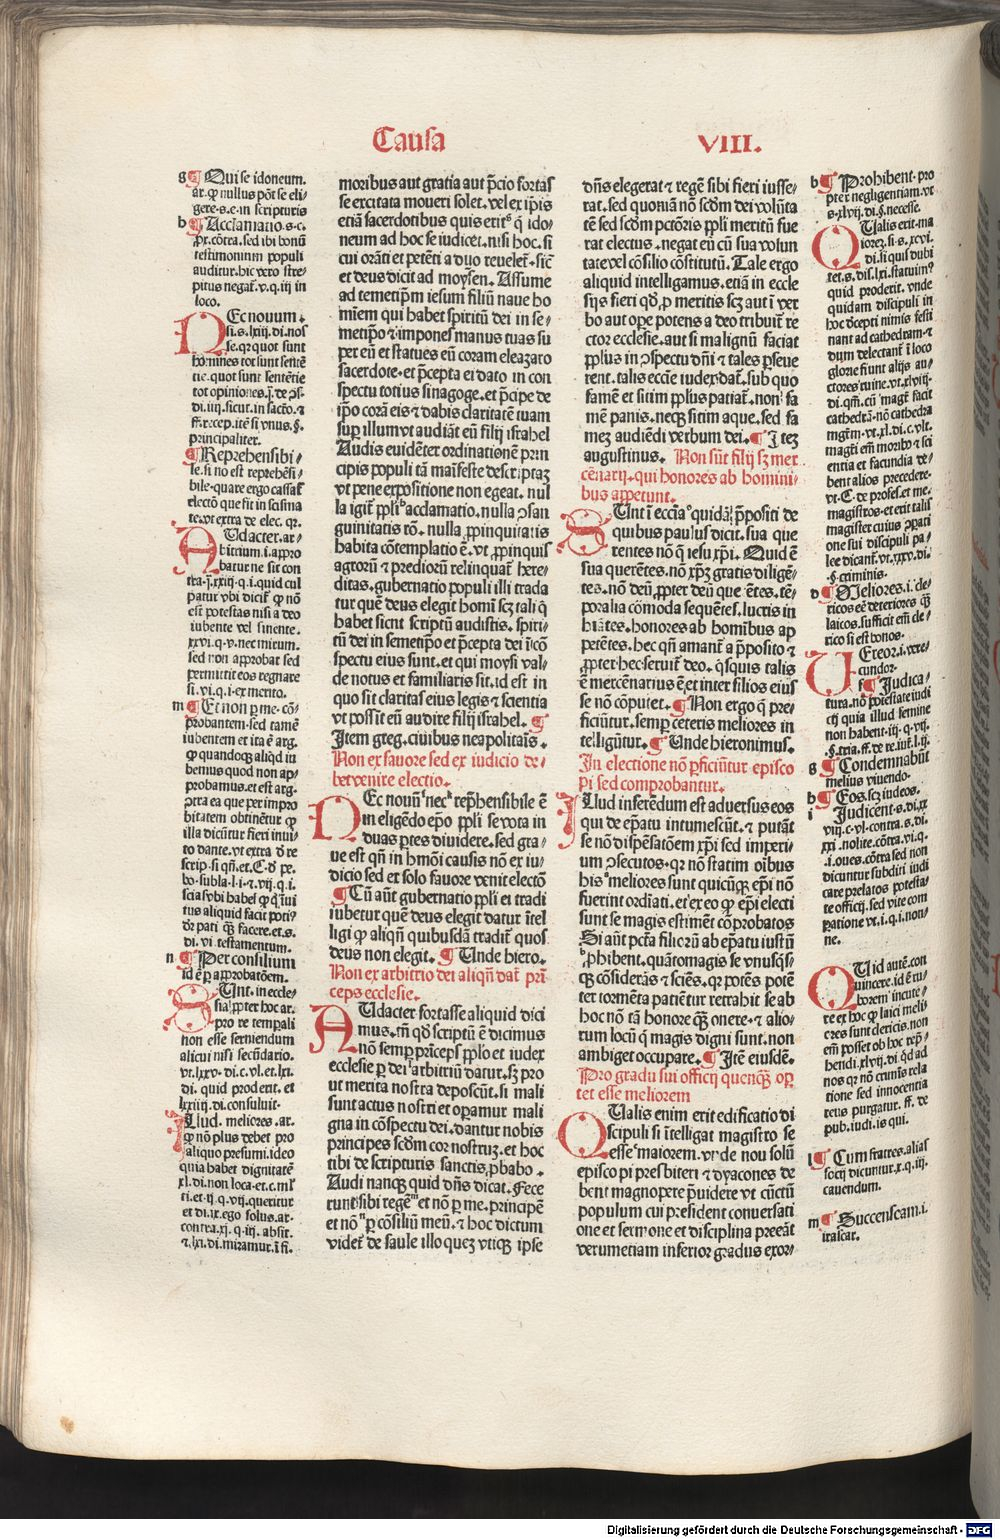 Causa
VIII.
g ¶ Qui se idoneum.
ar. ꝙ nullus pōt se eli⸗
gere. s. e. in scripturis
b ¶ Acclamatio. s. c.
ꝓx. cōtra. sed ibi bonū
testimonium populi
auditur. hic vero stre⸗
pitus negat᷑. v. q. iij in
loco.
NEc nouum.
si. s. lxiij. di. nos
se. qꝛ quot sunt
homines tot sunt sentē
tie. quot sunt sententie
tot opiniones.
di. iiij. sicut. in sacro. et
ff. recep. itē si vnus. §.
principaliter.
¶ Reprehensibi⸗
le. si nō est reprehēsi⸗
bile. quare ergo cassat᷑
electō que fit in scisma
te. vt extra de elec. qꝛ.
AUdacter. ar⸗
bitrium. i. appro
batur ne sit con
tra. j. xxiij. q. i. quid cul
patur vbi dicit᷑ ꝙ nō
est potestas nisi a deo
iubente vel sinente.
xxvi. q. v. nec mirum.
sed non approbat sed
permittit eos regnare
si. vi. q. i. ex merito.
m ¶ Et non ꝑ me. cō⸗
probantem. sed tamē
iubentem et ita ē arg.
ꝙ quandoqꝫ aliqd iu
bemus quod non ap⸗
probamus. et est arg.
ɔtra ea que per impro
bitatem obtinētur ꝙ
illa dicūtur fieri inui⸗
to dante. vt extra de re
scrip. si qn̄. et. C. de ve.
bo. subla. l. i. et. vij. q. i.
scia vbi habet᷑ ꝙ q̄ inui
tus aliquid facit poti⸗
dr̄ pati qꝫ facere. et. s.
di. vi testamentum.
n ¶ Per consilium
id ē ꝑ approbatōem.
SUnt. in eccle⸗
sia. ꝓpter hoc ar.
pro re tempali
non esse seruiendum
alicui nisi secūdario.
vt. lxxv. di. c. vl. et. lxi.
di. quid proderit. et
lxxiiij. di. consuluit.
ILlud. meliores. ar.
ꝙ nō plus debet pro
aliquo presumi. ideo
quia habet dignitatē
xl. di. non loca. et. c. ml᷑
ti. et. ij. q. vij. queritur
et di. ix. ego solus. ar.
contra. xj. q. iij. absit.
et. lxi. di. miramur. ī fi.
moribus aut gratia aut p̄cio fortas
se excitata moueri solet. vel ex ip̄is
etiā sacerdotibus quis erit q̄ ido⸗
neum ad hoc se iudicet. nisi hoc. si
cui orāti et petēti a dn̄o reuelet᷑. sic̄
et deus dicit ad moysen. Assume
ad temetip̄m iesum filiū naue ho
mīem qui habet spiritū dei in se⸗
metip̄o et impones manus tuas su
per eū et statues eū coram eleazaro
sacerdote. et p̄cepta ei dato in con
spectu totius sinagoge. et p̄cipe de
ip̄o corā eis et dabis claritatē tuam
suꝑ illum vt audiāt eū filij israhel
Audis euidēter ordinationē prin
cipis populi tā māifeste descriptaꝫ
vt pene expositione non egeat. nul
la igit᷑ ppl̄i acclamatio. nulla ɔsan
guinitatis rō. nulla ꝓpinquitatis
habita cōtemplatio ē. vt ꝓpinquis
agrorū et prediorū relinquat᷑ here⸗
ditas. gubernatio populi illi trada
tur quē deus elegit homī scꝫ tali q̄
habet sicut scriptū audistis. spiri⸗
tū dei in semetip̄o et p̄cepta dei ī cō
spectu eius sunt. et qui moysi val⸗
de notus et familiaris sit. id est in
quo sit claritas eius legis et scientia
vt possit eū audire filij israhel. ¶
Item greg. ciuibus neapolitāis.
Non ex fauore sed ex iudicio de⸗
bet venire electio.
NEc nouū nec rep̄hensibile ē
in eligēdo ep̄o ppl̄i se vota in
duas ꝑtes diuidere. sed gra⸗
ue est qn̄ in hm̄oi causis nō ex iu⸗
dicio sed et solo fauore venit electō
¶ Cū aūt gubernatio ppl̄i ei tradi
iubetur quē deus elegit datur ītel
ligi ꝙ aliqn̄ quibusdā tradit᷑ quos
deus non elegit. ¶ Unde hiero.
Non ex arbitrio dei aliqn̄ dat᷑ prī
ceps ecclesie.
AUdacter fortasse aliquid dici
mus. tn̄ qd̄ scriptū ē dicimus
nō semꝑ prīceps ppl̄o et iudex
ecclesie ꝑ dei arbitriū datur. sꝫ pro
ut merita nostra deposcūt. si mali
sunt actus nostri et oꝑamur mali
gna in cōspectu dei. dantur nobis
principes scd̄m cor nostruꝫ. et hoc
tibi de scripturis sanctis ꝓbabo.
Audi nanqꝫ quid dn̄s dicat. Fece
runt sibi regē et nō ꝑ me. principē
et nō ꝑ cōsiliū meū. et hoc dictum
videt᷑ de saule illo quez vtiqꝫ ipse
dn̄s elegerat et regē sibi fieri iusse⸗
rat. sed quoniā nō scd̄m dei volūta
tē sed scd̄m pctōris ppl̄i meritū fue
rat electus. negat eū cū sua volun
tate vel cōsilio cōstitutū. Tale ergo
aliquid intelligamus. etiā in eccle
sijs fieri qd̄. ꝓ meritis scꝫ aut ī ver
bo aut oꝑe potens a deo tribuit᷑ re
ctor ecclesie. aut si malignū faciat
ppl̄us in ɔspectu dn̄i et tales ꝑseue
rent. talis eccīe iudex dat᷑. sub quo
famē et sitim ppl̄us patiat᷑. non fa
mē panis. neqꝫ sitim aque. sed fa
mez audiēdi verbum dei. ¶ Itez
augustinus. Non sūt filij sꝫ mer
cēnarij. qui honores ab homini⸗
bus appetunt.
SUnt ī eccīa quidā p̄positi de
quibus paulus dicit. sua que
rentes nō q̄ iesu xp̄i. Quid ē
sua querētes. nō xp̄ꝫ gratis diligē⸗
tes. nō deū ꝓpter deū querētes. tē⸗
poralia cōmoda sequētes. lucris in
hiātes. honores ab homībus ap
petētes. hec qn̄ amant᷑ a p̄posito et
ꝓpter hec seruit᷑ deo. qͥsquis talis
ē mercēnarius ē et inter filios eius
se nō cōputet. ¶ Non ergo q̄ pre⸗
ficiūtur. semꝑ ceteris meliores in
telligūtur. ¶ Unde hieronimus.
In electione nō ꝑficiūtur episco
pi sed comprobantur.
ILlud inferēdum est aduersus eos
qui de ep̄atu intumescūt. et putāt
se nō dispēsatōem xp̄i sed imperi⸗
um ɔsecutos. qꝛ nō statim oībus
his meliores sunt quicūqꝫ ep̄i nō
fuerint ordīati. et ex eo ꝙ ep̄i electi
sunt se magis estimēt cōprobatos
Si aūt pctā filiorū ab ep̄atu iustū
ꝓhibent. quātomagis se vnusqͥs⸗
qꝫ cōsiderās et sciēs. qꝛ potēs potē
ter tormēta patiētur retrahit se ab
hoc nō tā honore qꝫ onere. et alio⸗
rum locū q̄ magis digni sunt. non
ambiget occupare. ¶ Itē eiusdē.
Pro gradu sui officij quemqꝫ opꝫ
tet esse meliorem
QUalis enim erit edificatio di
scipuli si ītelligat magistro se
esse maiorem. vnde nou solū
episcopi presbiteri et dyacones de
bent magnopere p̄uidere vt cūctū
populum cui president conuersati
one et sermone et disciplina preeāt
verumetiam inferior gradus exor⸗
h ¶ Prohibent. pro
pter negligentiam. vt
s. xlvij. di. §. necesse.
QUalis erit. ma
iorez. si. s. xcvi.
di. si quis dubi
tet. s. dis. lxi. statuim⁹
quid proderit. vnde
quidam discipuli in
hoc d̄cepti nimis festi
nant ad cathedram. et
dum delectant᷑ ī loco
glorie fiunt alijs au⸗
ctores ruine. vt. xlviij.
di. qm̄. cū magr̄ facit
cathedrā. nō cathedra
mgr̄m. vt. xl. di. c. vlt.
magr̄i em̄ moribꝰ et sci
entia et facundia de⸗
bent alios precedere.
vt. C. de profes. et me.
magistros. et erit talis
magister cuius ɔpati
one sui discipuli pa⸗
lee dicant᷑. vt. xxv. di.
. § criminis.
o ¶ Meliores. i. cle⸗
ricos eē deteriores qꝫ
laicos. sufficit em̄ cle⸗
rico si est bonos.
UEreor. i. vere⸗
cundor.
f ¶ Judica⸗
tura. nō p̄tāte iudi
cij quia illud femine
non habent. iij. q. vij.
. §. tria. ff. de re. iur. l. ij.
g ¶ Condemnabūt
melius viuendo.
h ¶ Eos. scꝫ iudeos.
i Judicent. s. di. xx
viij. c. vl. contra. s. di.
xxi. nolite. cōtra. vi. q.
. i. oues. cōtra sed non
dicuntur subditi iudi
care prelatos potesta⸗
te officij. sed vite com
paratione vt. i. q. i. noti⸗
ne.
QUid autē. con
uincere. id ē ru⸗
borem incute⸗
re ex hoc ꝙ laici meli
ores sunt clericis. non
em̄ posset ob hoc rep̄⸗
hendi. xlvij. di. q̄d ad
nos qꝛ nō crīnis rela
tione sed innocentia
reus purgatur. ff. de
pub. iudi. is qui.
l ¶ Cum fratres. alias
socij dicuntur. x. q. iij.
cauendum.
m ¶ Succenseam. i.
irascar.
Digitalisierung gefördert durch die Deutsche Forschungsgemeinschaft - DFG